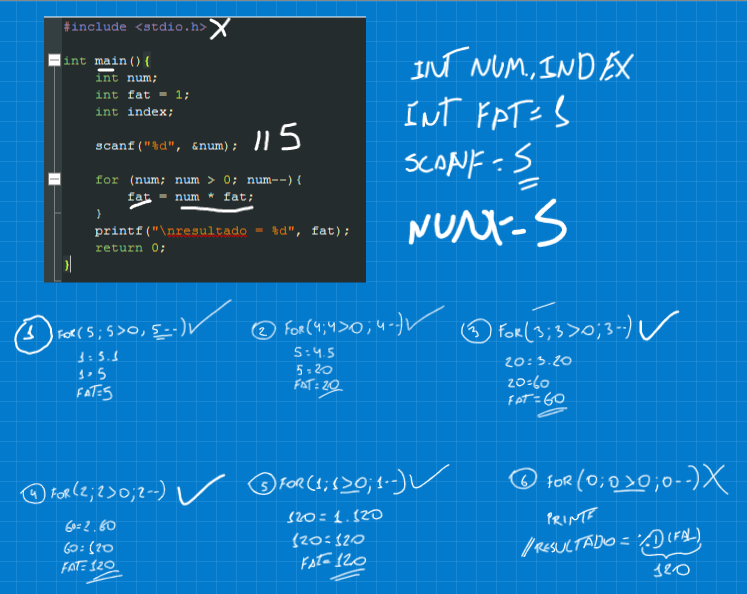 #include <stdio.h> X
int main(){
int num;
int fat = 1;
int index;
scanf("%d", &num); // 5
for (num; num > 0; num--){
fat = num * fat;
}
printf("\nresultado = %d", fat);
return 0;
}
INT NUM, INDEX
INT FAT = 1
SCANF = 5
NUM = 5
1 FOR(5; 5>0, 5--)
1 = 5.1
1 = 5
FAT=5
2 FOR(4; 4>0; 4--)
5 = 4.5
5 = 20
FAT=20
3 FOR(3; 3>0; 3--)
20 = 3.20
20=60
FAT=60
4 FOR(2; 2>0; 2--)
60=2.60
60=120
FAT=120
5 FOR(1; 1>0; 1--)
120 = 1.120
120 = 120
FAT=120
6 FOR(0; 0>0; 0--) X
PRINTF
//RESULTADO = %D (FAT)
120